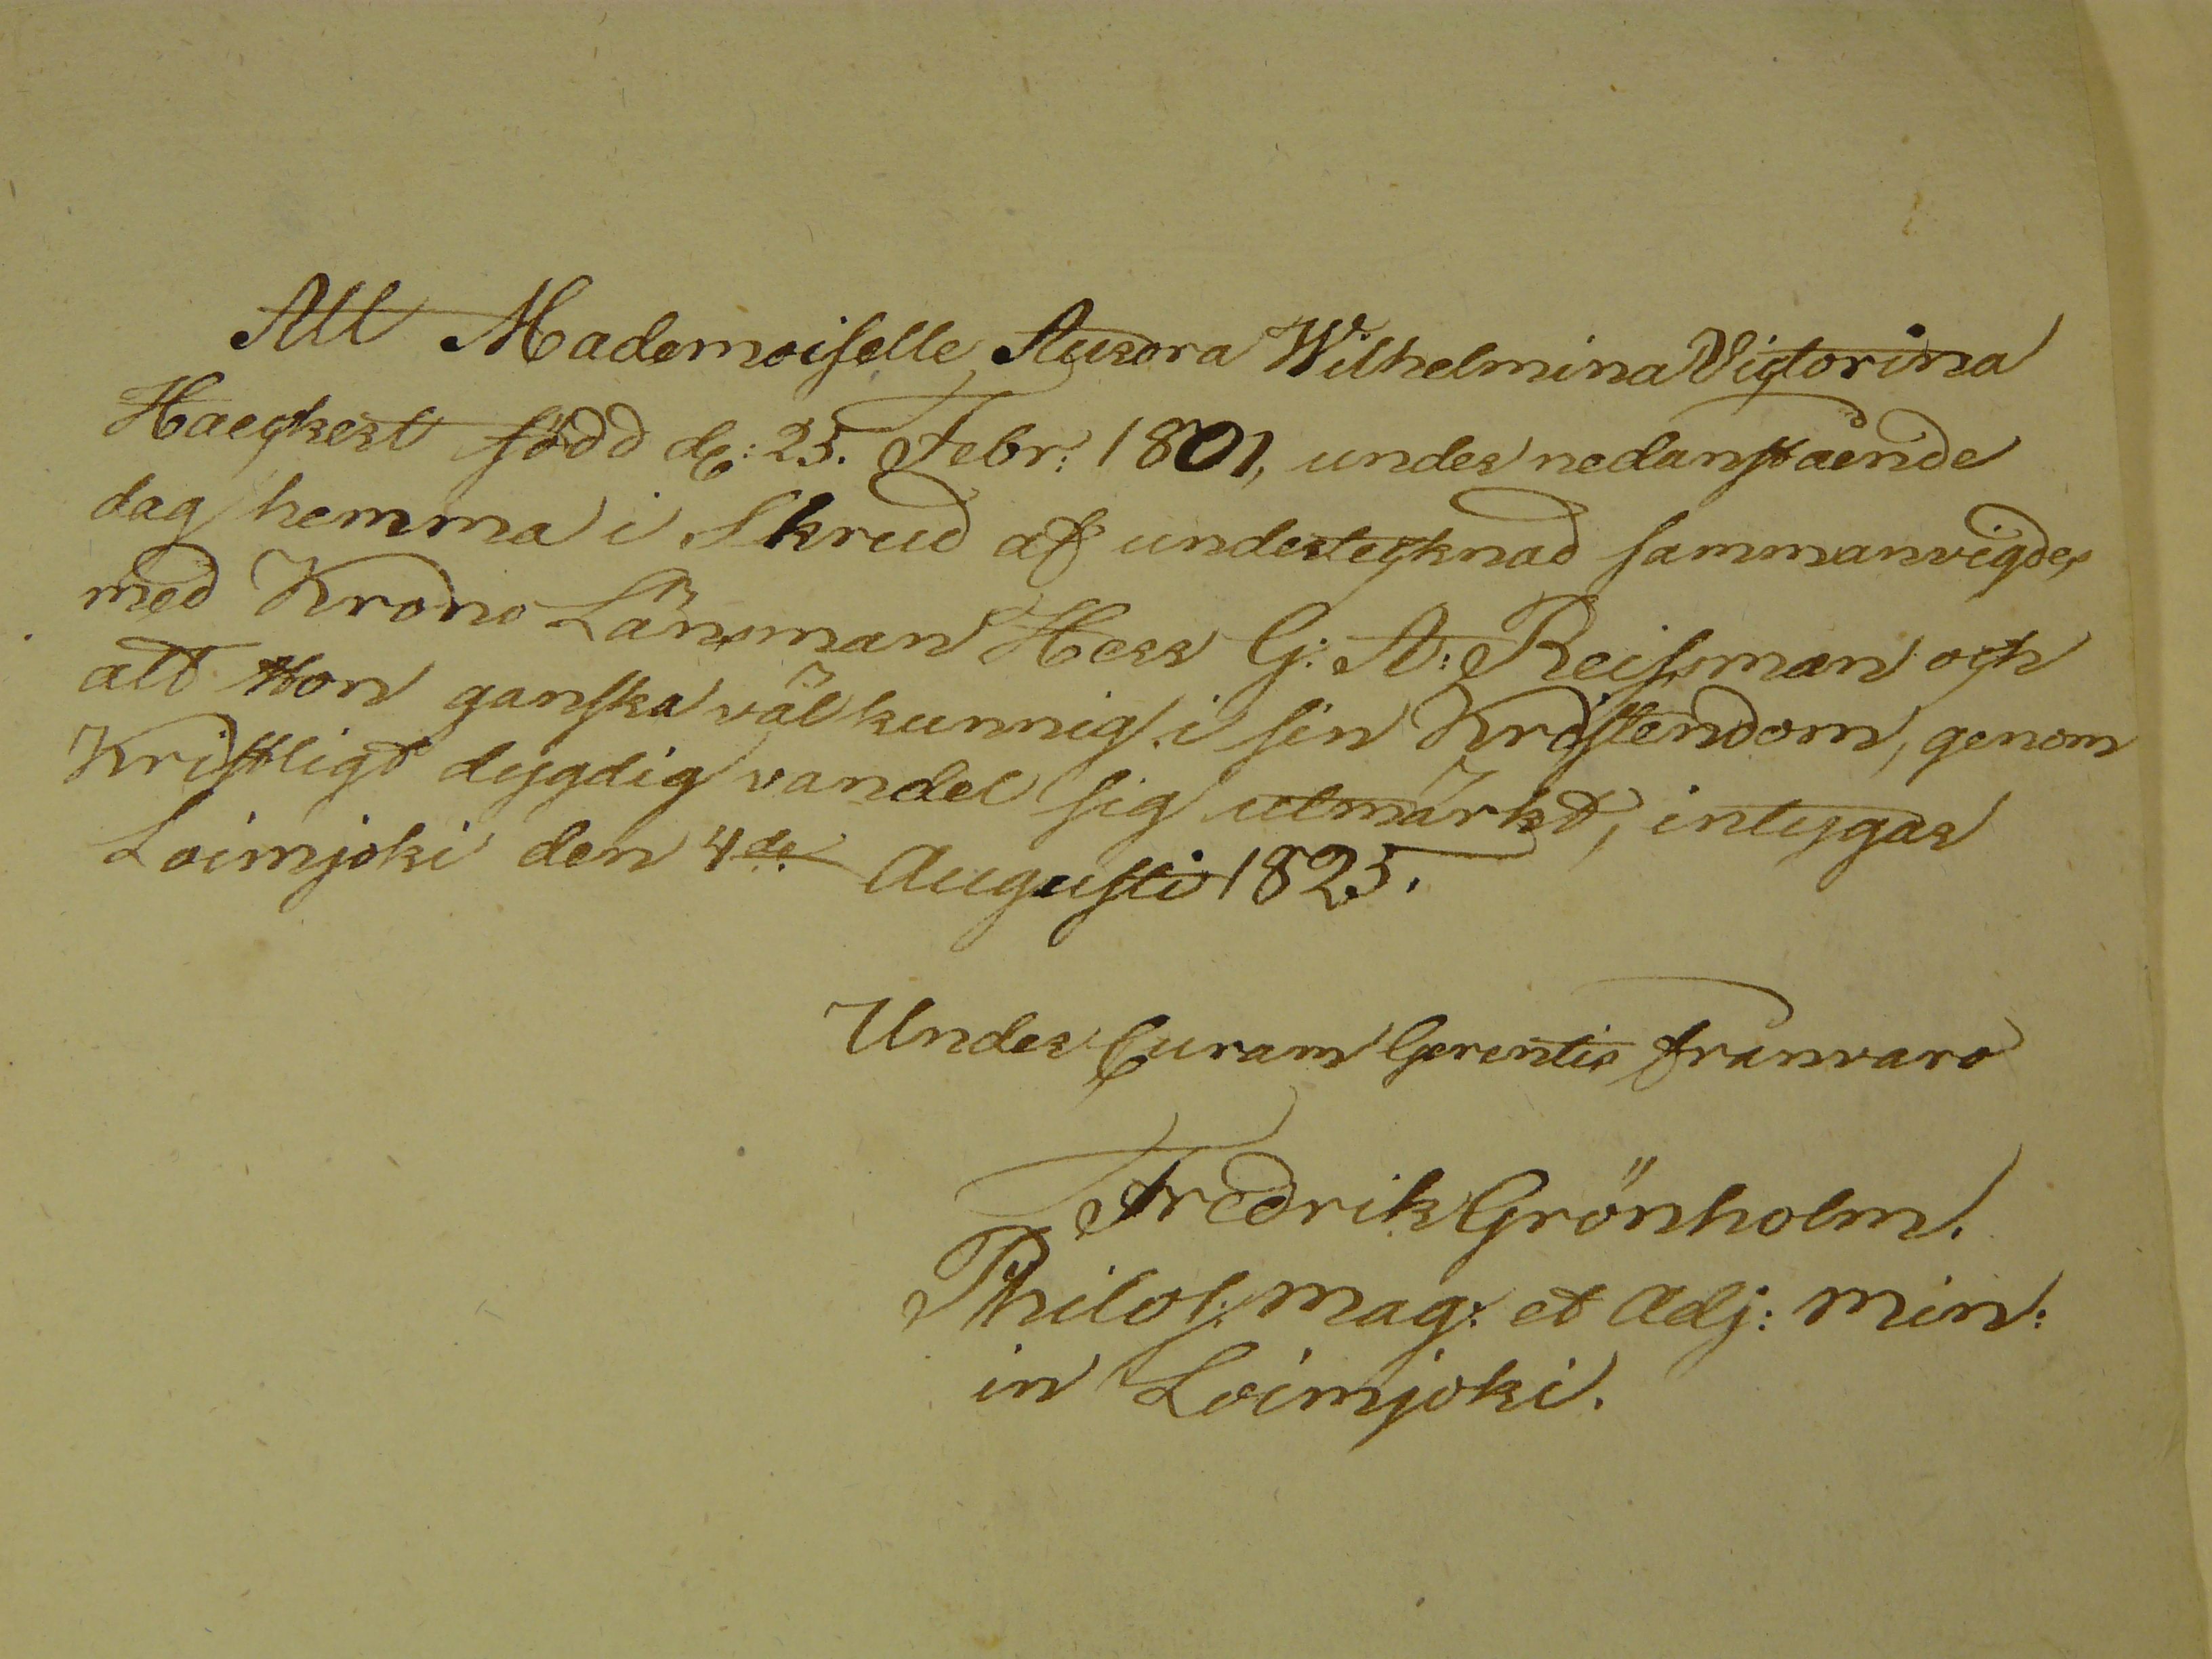 Att Mademoiselle Aurora Wilhelmina Victorina
Haeckert född d: 25. Febr: 1801, under nedanstående
dag hemma i Skrud af undertecknad sammanvigdes
med Krono Länsman Herr G: A: Reisman och
att Hon ganska väl kunnig i sin Kristendom, genom
Kristligt dygdig vandel sig utmärkt, intygar
Loimjoki den 4de Augusti 1825.
Under Curam Gerentis frånvaro
Fredrik Grönholm.
Philos: Mag: et Adj: Min:
in Loimjoki.